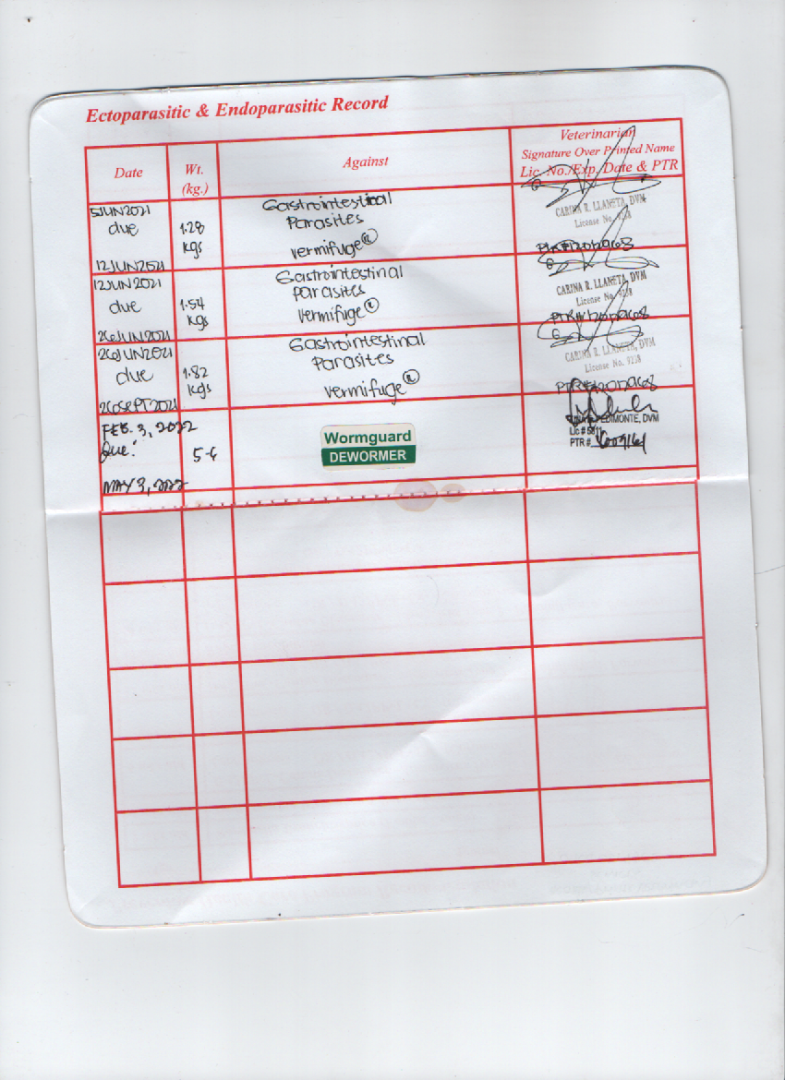 Ectoparasitic & Endoparasitic Record
Date
Wt.
(kg.)
Against
Veterinarian
Signature Over Printed Name
Lic. No./Exp. Date & PTR
5JUN2021
due
12JUN2021
1.28
kgs
Gastrointestinal
Parasites
vermifuge®
CARINA R. LLANETA, DVM
License No.
12JUN2021
due
26JUN2021
1.54
kgs
Gastrointestinal
Parasites
vermifuge®
CARINA R. LLANETA, DVM
License No.
26JUN2021
due
26SEPT2021
1.82
kgs
Gastrointestinal
Parasites
vermifuge®
CARINA R. LLANETA, DVM
License No.
FEB. 3, 2022
Due:
MAY 3, 2022
5.6
Wormguard
DEWORMER
DVM
Lic #
PTR #